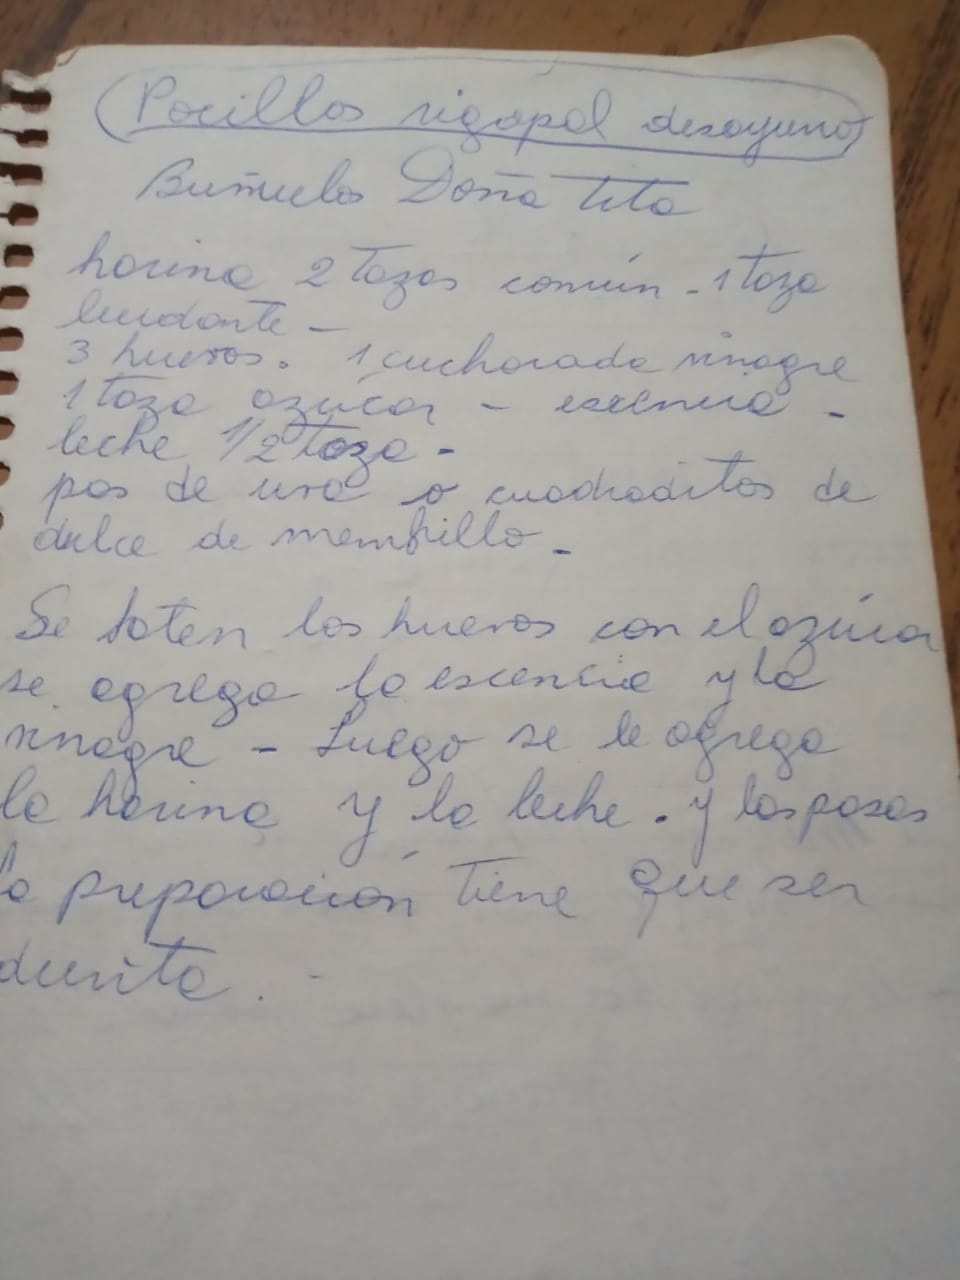 Pocillos rigopal desayuno
Buñuelos Doña Tita
harina 2 tazas común - 1 taza
leudante -
3 huevos. 1 cucharada vinagre
1 taza azúcar - esencia -
leche 1/2 taza -
pas de uva o cuadraditos de
dulce de membrillo -
Se baten los huevos con el azúcar
se agrega la escencia y la
vinagre - Luego se le agrega
la harina y la leche . y las pasas
la preparación tiene que ser
durita . -